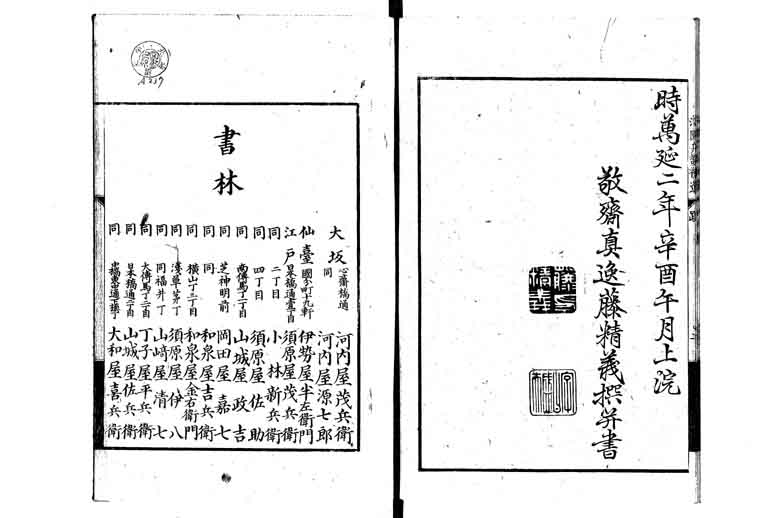 時萬延二年辛酉午月上浣
敬齋真逸藤精義撰并書
書林
大坂 心齋橋通 河内屋茂兵衛
同 河内屋源七郎
仙臺 國分町十九軒 伊勢屋半左衛門
江戸 日本橋通壹丁目 須原屋茂兵衛
同 二丁目 小林新兵衛
同 四丁目 須原屋佐助
同 南傳馬丁一丁目 山城屋政吉
同 芝神明前 岡田屋嘉七
同 同 和泉屋吉兵衛
同 横山丁三丁目 和泉屋金右衛門
同 淺草茅丁 須原屋伊八
同 同福井丁 山﨑屋清七
同 大傳馬丁二丁目 丁子屋平兵衛
同 日本橋通二丁目 山城屋佐兵衛
同 大和屋喜兵衛